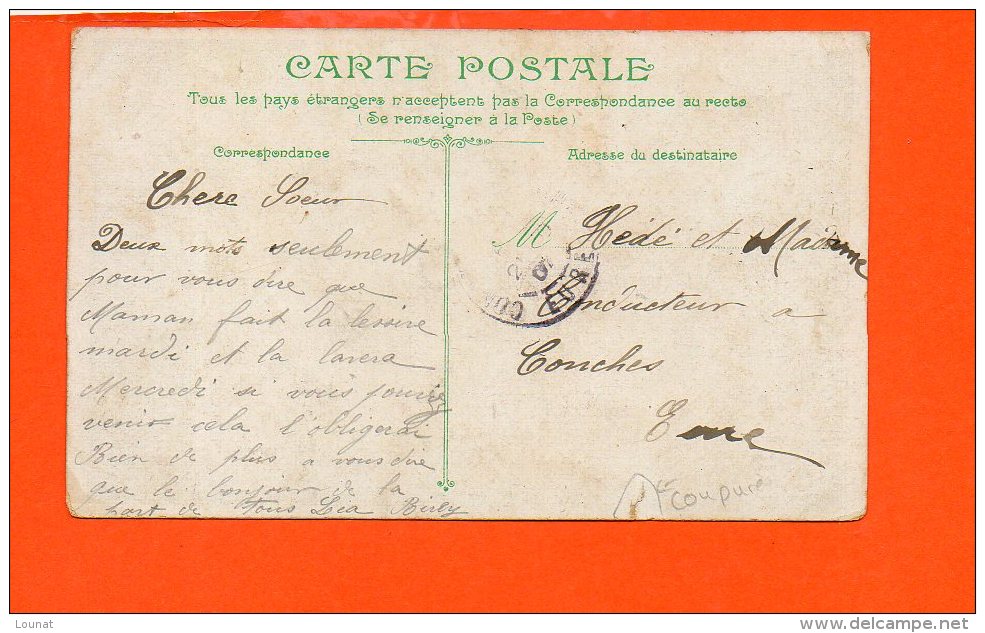 CARTE POSTALE
Tous les pays étrangers n'acceptent pas la Correspondance au recto
(Se renseigner à la Poste)
Correspondance
Chere Soeur
Deux mots seulement
pour vous dire que
Maman fait la lessive
mardi et la lavera
Mercredi si vous pouvie
venir cela l'obligerai
Rien de plus a vous dire
que le bonjour de la
part de tous Léa
Adresse du destinataire
M Hédé et Madame
Conducteur a
Conches
Eure
EURE
coupure
Lounat
delcampe.net